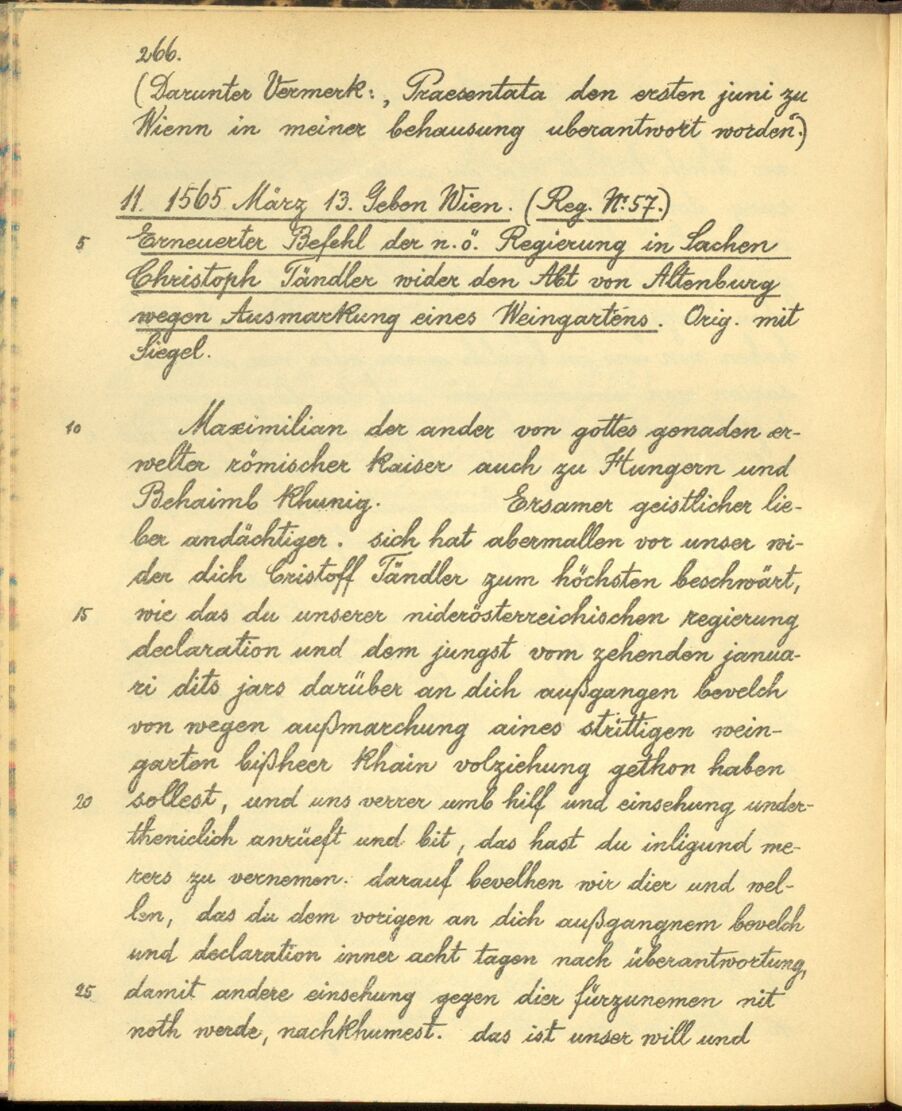 266.
(Darunter Vermerk: „Praesentata den ersten juni zu
Wienn in meiner behausung uberantwort worden“.)
11. 1565 März 13. Geben Wien. (Reg. No. 57.)
5 Erneuerter Befehl der n. ö. Regierung in Sachen
Christoph Tändler wider den Abt von Altenburg
wegen Ausmarkung eines Weingartens. Orig. mit
Siegel.
10 Maximilian der ander von gottes genaden er-
welter römischer kaiser auch zu Hungern und
Behaimb khunig. Ersamer geistlicher lie-
ber andächtiger. sich hat abermallen vor unser wi-
der dich Cristoff Tändler zum höchsten beschwärt,
15 wie das du unserer niderösterreichischen regierung
declaration und dem jungst vom zehenden janua-
ri dits jars darüber an dich außgangen bevelch
von wegen außmarchung aines strittigen wein-
garten bißheer khain volziehung gethon haben
20 sollest, und uns verrer umb hilf und einsehung under-
theniclich anrüeft und bit, das hast du inligund me-
rers zu vernemen. darauf bevelhen wir dier und wel-
len, das du dem vorigen an dich außgangnem bevelch
und declaration inner acht tagen nach überantwortung,
25 damit andere einsehung gegen dier fürzunemen nit
noth werde, nachkhumest. das ist unser will und